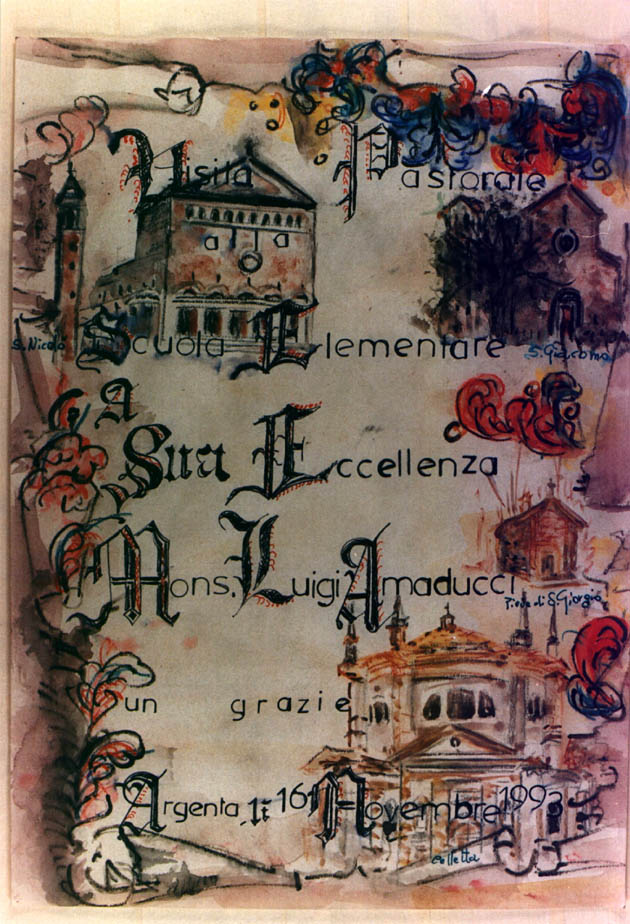 Visita Pastorale
alla
S. Nicolò Scuola Elementare S. Giacomo
A
Sua Eccellenza
Mons. Luigi Amaducci
Pieve di S. Giorgio
un grazie
Argenta, li 16 Novembre 1993
colletta